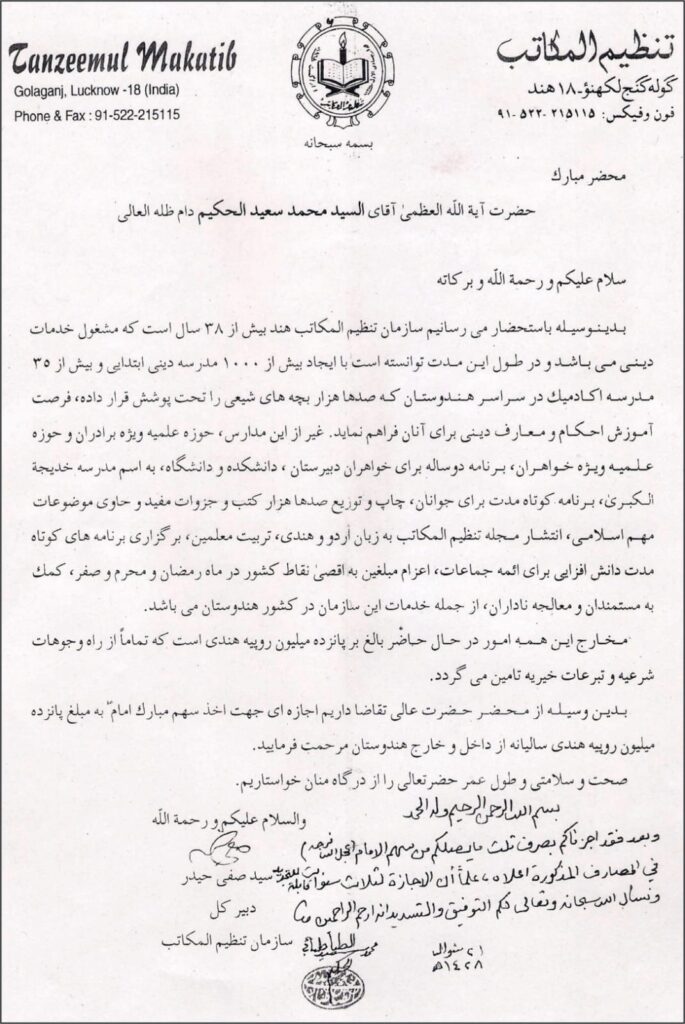 Tanzeemul Makatib
Golaganj, Lucknow -18 (India)
Phone & Fax : 91-522-215115
تنظیم المکاتب
گولہ گنج لکھنؤ۔۱۸ ھند
فون وفیکس: ۲۱۵۱۱۵-۵۲۲-۹۱
بسمه سبحانه
محضر مبارك
حضرت آیة الله العظمیٰ آقای السید محمد سعید الحکیم دام ظله العالی
سلام علیکم و رحمة الله و برکاته
بدینوسیله باستحضار می رسانیم سازمان تنظیم المکاتب هند بیش از ۳۸ سال است که مشغول خدمات
دینی می باشد و در طول این مدت توانسته است با ایجاد بیش از ۱۰۰۰ مدرسه دینی ابتدایی و بیش از ۳۵
مدرسه اکادمیك در سراسر هندوستان که صدها هزار بچه های شیعی را تحت پوشش قرار داده، فرصت
آموزش احکام و معارف دینی برای آنان فراهم نماید. غیر از این مدارس، حوزه علمیه ویژه برادران و حوزه
علمیه ویژه خواهران، برنامه دوساله برای خواهران دبیرستان ، دانشکده و دانشگاه، به اسم مدرسه خدیجة
الکبریٰ، برنامه کوتاه مدت برای جوانان، چاپ و توزیع صدها هزار کتب و جزوات مفید و حاوی موضوعات
مهم اسلامی، انتشار مجله تنظیم المکاتب به زبان اردو و هندی، تربیت معلمین، برگزاری برنامه های کوتاه
مدت دانش افزایی برای ائمه جماعات، اعزام مبلغین به اقصیٰ نقاط کشور در ماه رمضان و محرم و صفر، کمك
به مستمندان و معالجه ناداران، از جمله خدمات این سازمان در کشور هندوستان می باشد.
مخارج این همه امور در حال حاضر بالغ بر پانزده میلیون روپیه هندی است که تماماً از راه وجوهات
شرعیه و تبرعات خیریه تامین می گردد.
بدین وسیله از محضر حضرت عالی تقاضا داریم اجازه ای جهت اخذ سهم مبارك امامؑ به مبلغ پانزده
میلیون روپیه هندی سالیانه از داخل و خارج هندوستان مرحمت فرمایید.
صحت و سلامتی و طول عمر حضرتعالی را از درگاه منان خواستاریم.
والسلام علیکم و رحمة الله
بسم الله الرحمن الرحیم وله الحمد
وبعد فقد اجزناکم بصرف ثلث ما یصلکم من سهم الامام
في المصارف المذکورة اعلاه، علماً أن الاجازة لثلاث سنوات قابلة للتجدید
سید صفی حیدر
ونسأل الله سبحانه وتعالی لکم التوفیق والتسدید انه ارحم الراحمین
دبیر کل
سازمان تنظیم المکاتب
محمد سعید الطباطبائي
الحکیم
۲۱ شوال
۱۴۲۸هـ